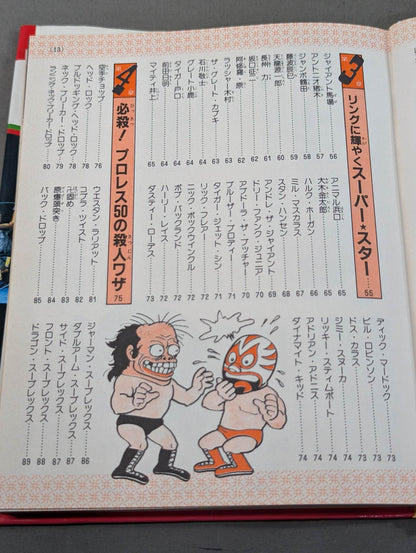 (13)
第3章 リングに輝やくスーパー★スター……55
ジャイアント馬場 55
アントニオ猪木 56
ジャンボ鶴田 57
藤波辰巳 58
天龍源一郎 59
長州 力 60
坂口征二 61
阿修羅・原 62
ラッシャー木村 62
ザ・グレート・カブキ 63
石川敬士 63
グレート小鹿 64
タイガー戸口 64
前田日明 64
マイティ井上 65
アニマル浜口 65
大木金太郎 65
ハルク・ホーガン 66
ミル・マスカラス 67
スタン・ハンセン 68
アンドレ・ザ・ジャイアント 69
ドリー・ファンク・ジュニア 69
アブドーラ・ザ・ブッチャー 70
ブルーザー・ブロディ 70
タイガー・ジェット・シン 71
リック・フレアー 71
ニック・ボックウインクル 71
ボブ・バックランド 72
ハーリー・レイス 72
ダスティー・ローデス 73
ディック・マードック 73
ビル・ロビンソン 73
ドス・カラス 73
ジミー・スヌーカ 74
リッキー・スティムボート 74
アドリアン・アドニス 74
ダイナマイト・キッド 74
第4章 必殺！ プロレス50の殺人ワザ 75
空手チョップ 76
ヘッド・ロック 78
ブルドッギング・ヘッド・ロック 78
ネック・ブリーカー・ドロップ 79
ランニング・ネックブリーカー・ドロップ 80
ウエスタン・ラリアット 81
コブラ・ツイスト 82
卍固め 83
原爆頭突き 84
バック・ドロップ 85
ジャーマン・スープレックス 86
ダブルアーム・スープレックス 87
サイド・スープレックス 87
フロント・スープレックス 88
ドラゴン・スープレックス 89